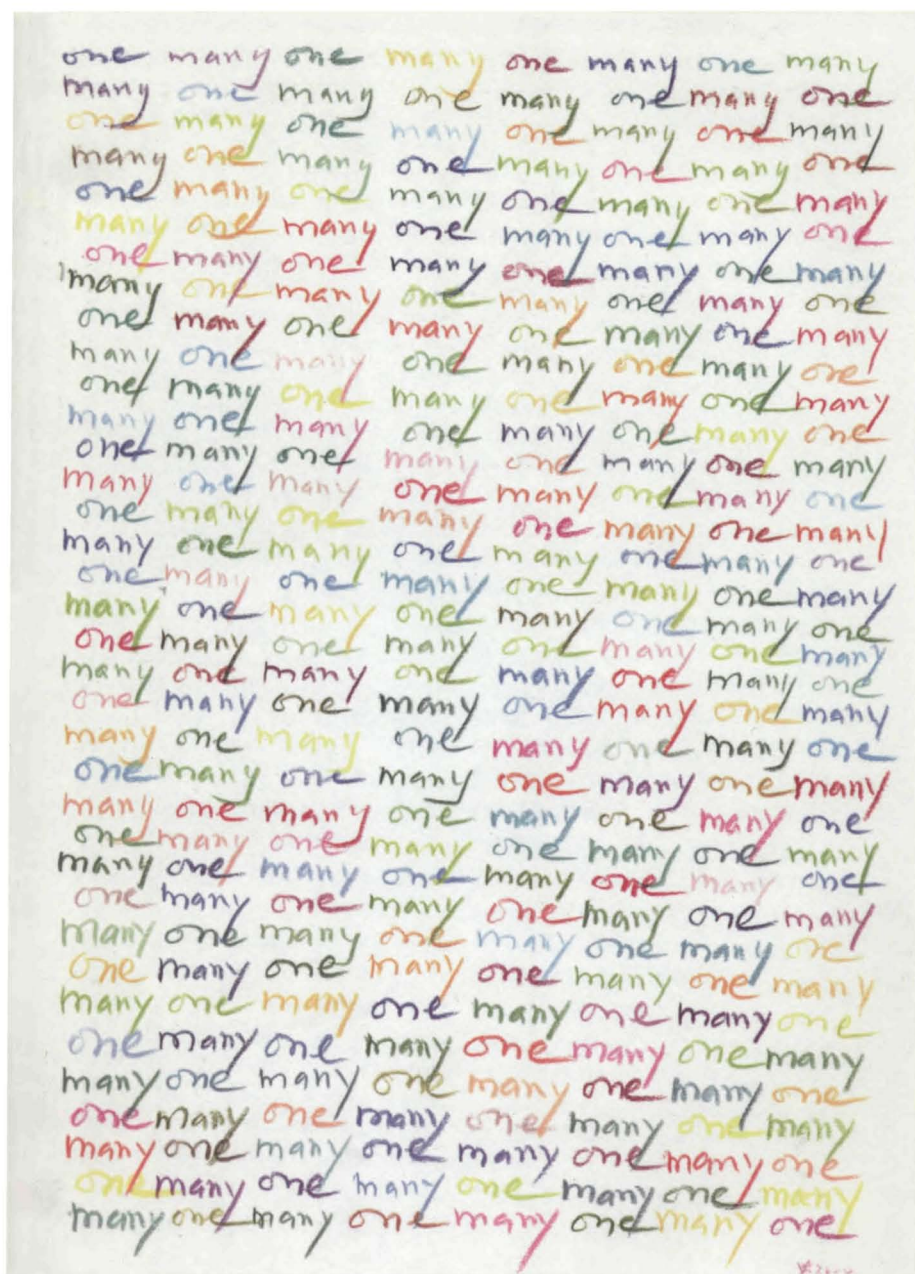 one many one many one many one many
many one many one many one many one
one many one many one many one many
many one many one many one many one
one many one many one many one many
many one many one many one many one
one many one many one many one many
many one many one many one many one
one many one many one many one many
many one many one many one many one
one many one many one many one many
many one many one many one many one
one many one many one many one many
many one many one many one many one
one many one many one many one many
many one many one many one many one
one many one many one many one many
many one many one many one many one
one many one many one many one many
many one many one many one many one
one many one many one many one many
many one many one many one many one
one many one many one many one many
many one many one many one many one
one many one many one many one many
many one many one many one many one
one many one many one many one many
many one many one many one many one
one many one many one many one many
many one many one many one many one
one many one many one many one many
many one many one many one many one
one many one many one many one many
many one many one many one many one
one many one many one many one many
many one many one many one many one